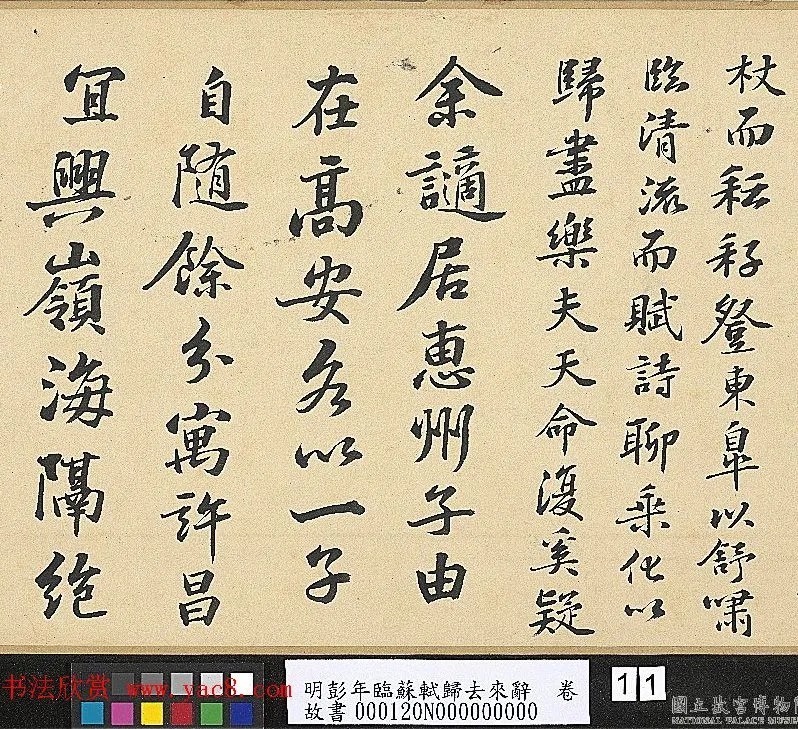 杖而耘耔登東皐以舒嘯
臨清流而賦詩聊乘化以
歸盡樂夫天命復奚疑
余謫居惠州子由
在高安各以一子
自随餘分寓許昌
宜興嶺海隔絶
书法欣赏 www.yac8.com
明彭年臨蘇軾歸去來辭 卷
故書 000120N000000000
11
國立故宮博物院
NATIONAL PALACE MUSEUM